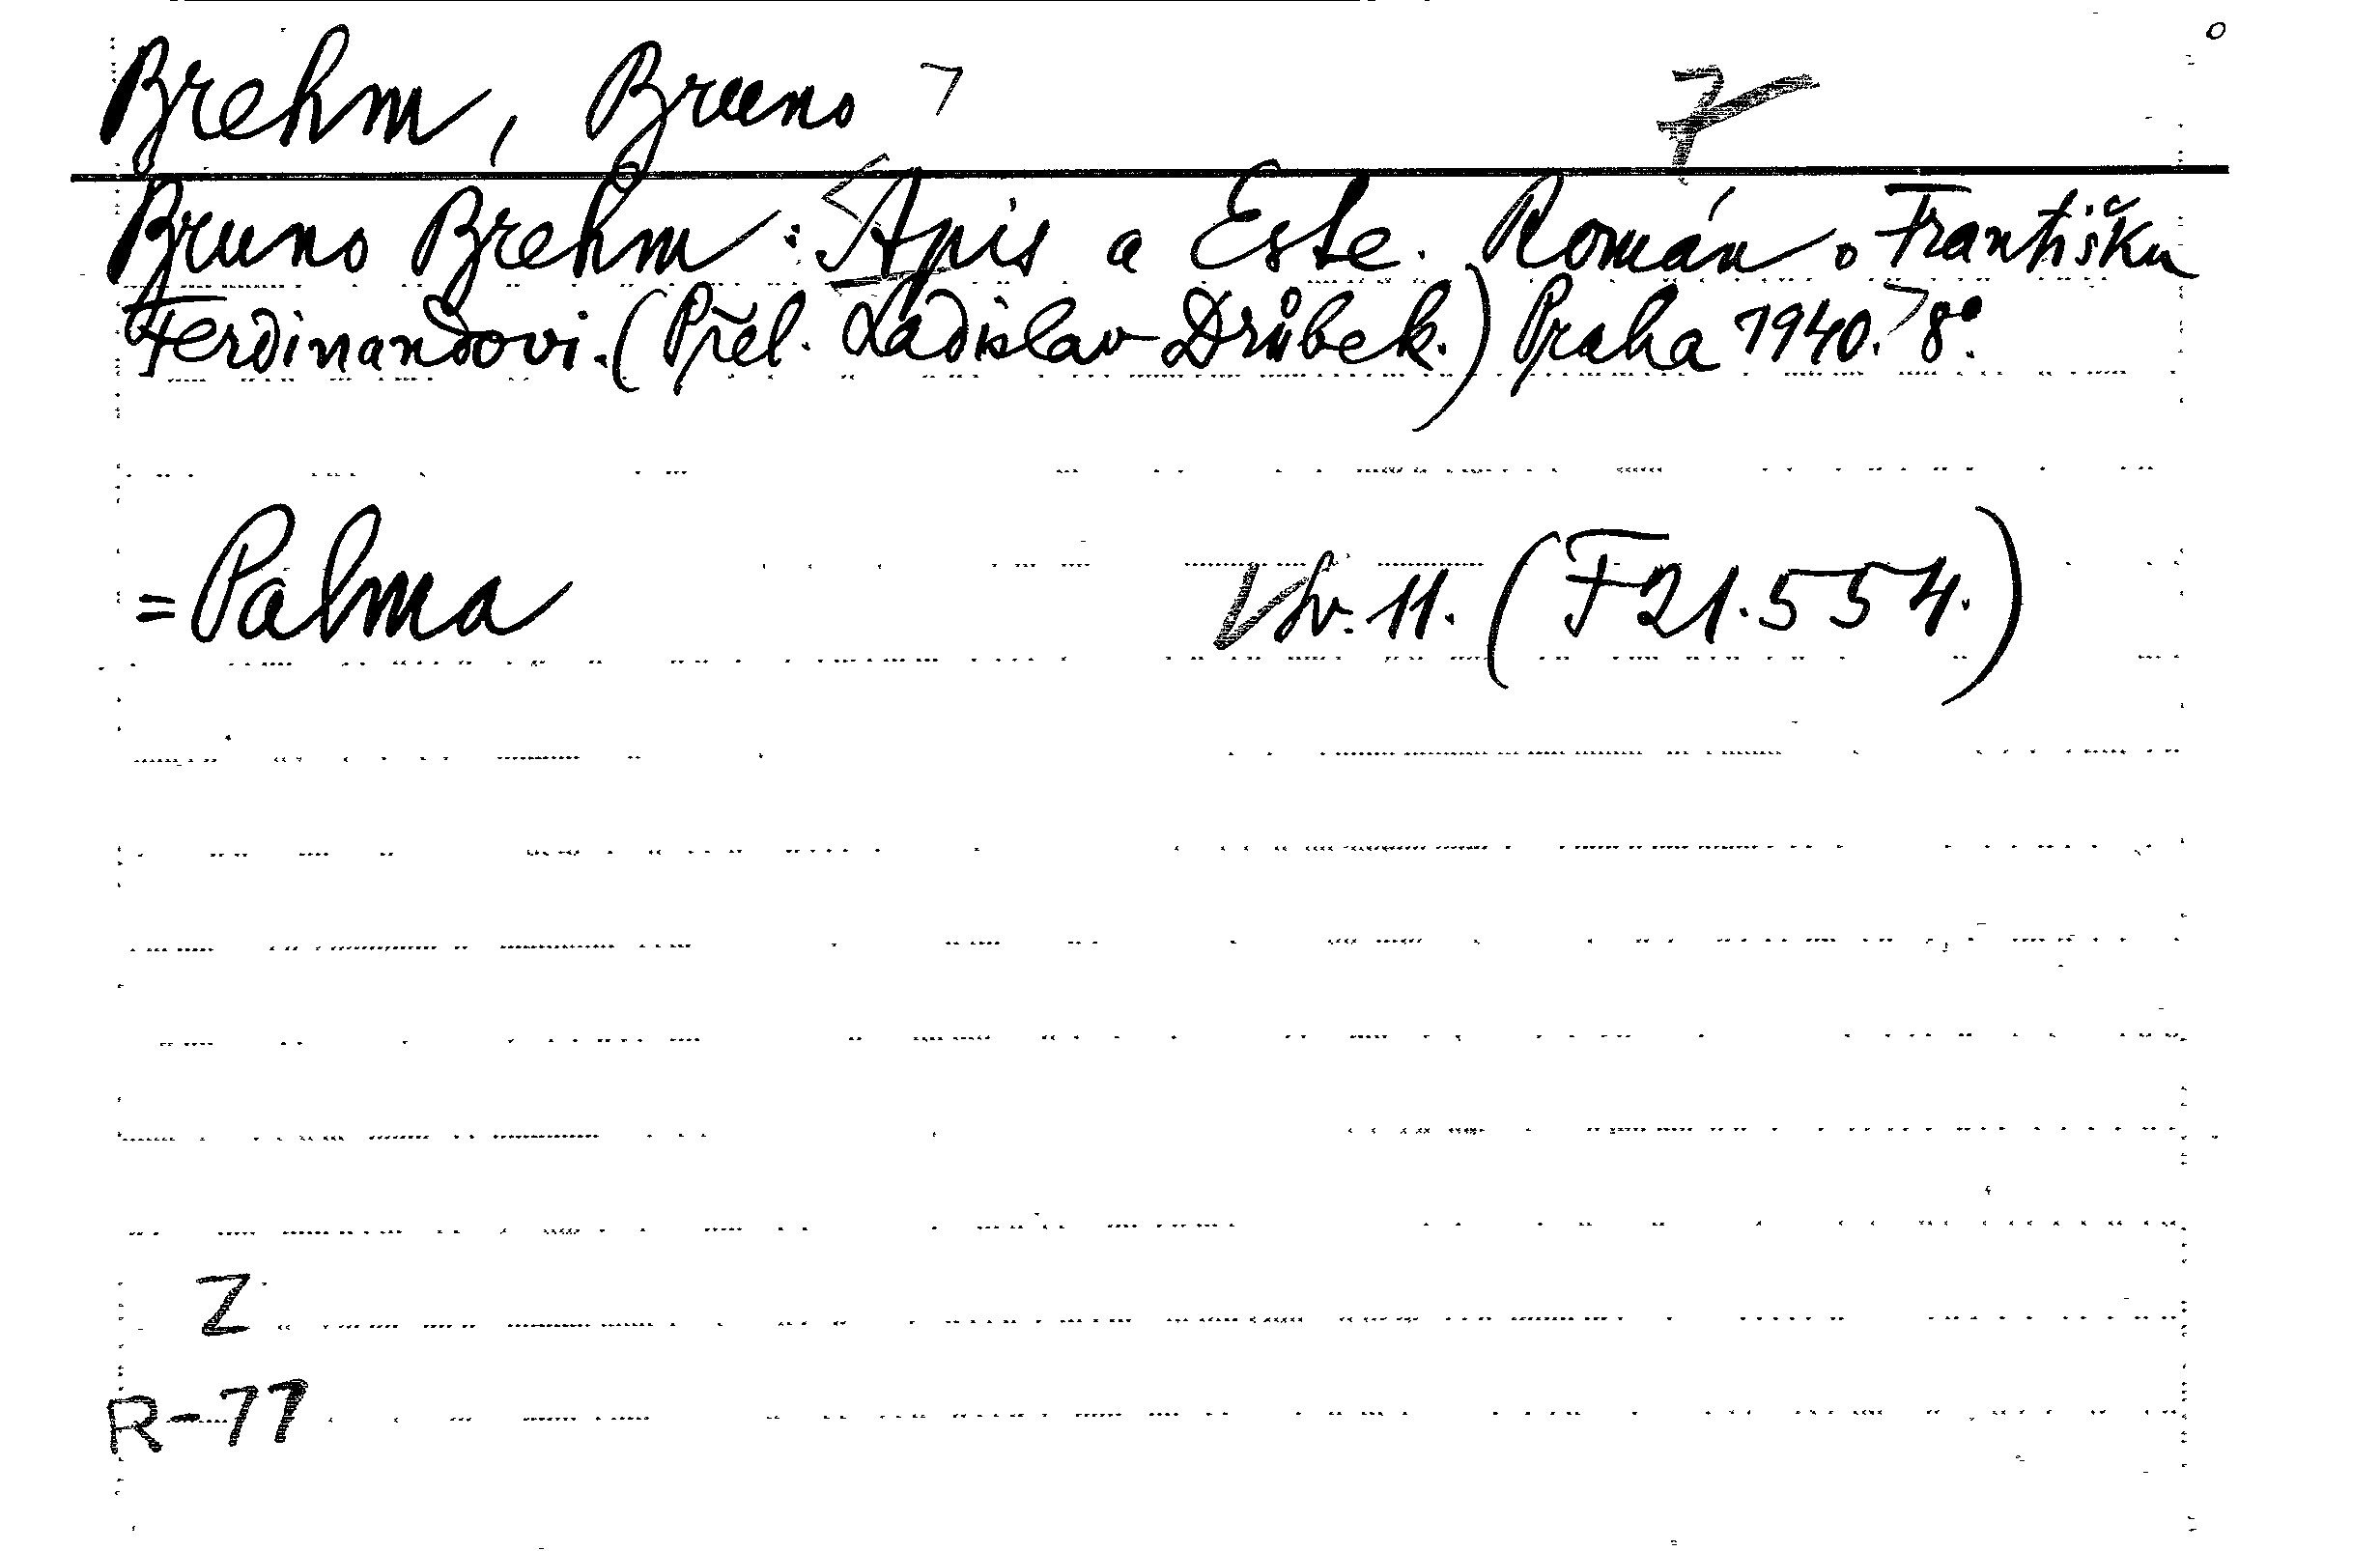 Brehm, Bruno
Bruno Brehm: Apis a Este. Román o Františku
Ferdinandovi. (Přel. Ladislav Drůbek.) Praha 1940. 8°.
= Palma
Sv. 11. (F 21.554.)
Z
R-77